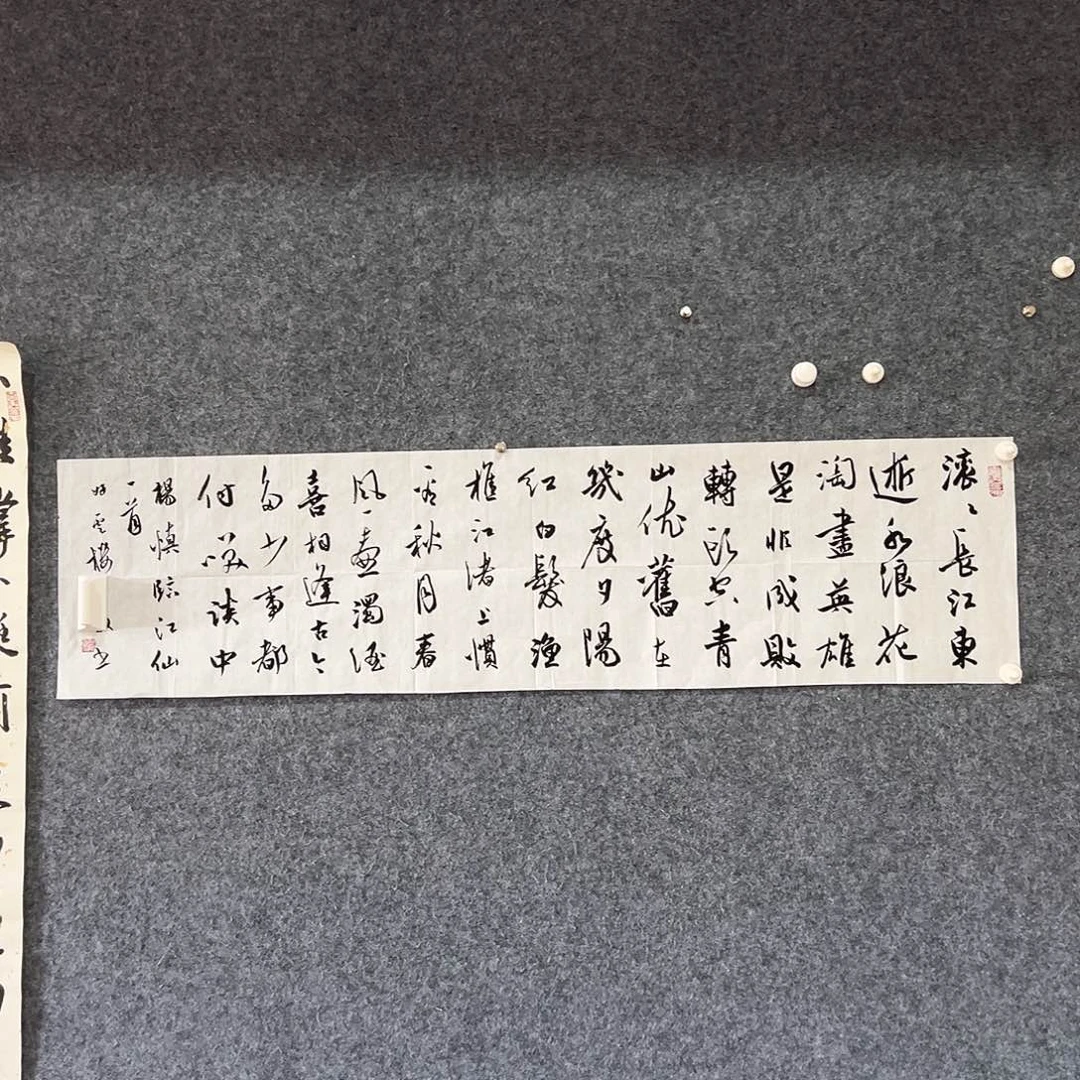 滚〻長江東
逝水浪花
淘盡英雄
是非成敗
轉頭空青
山依舊在
幾度夕陽
红白髮漁
樵江渚上慣
看秋月春
風一壺濁酒
喜相逢古今
多少事都
付笑談中
楊慎臨江仙
一首